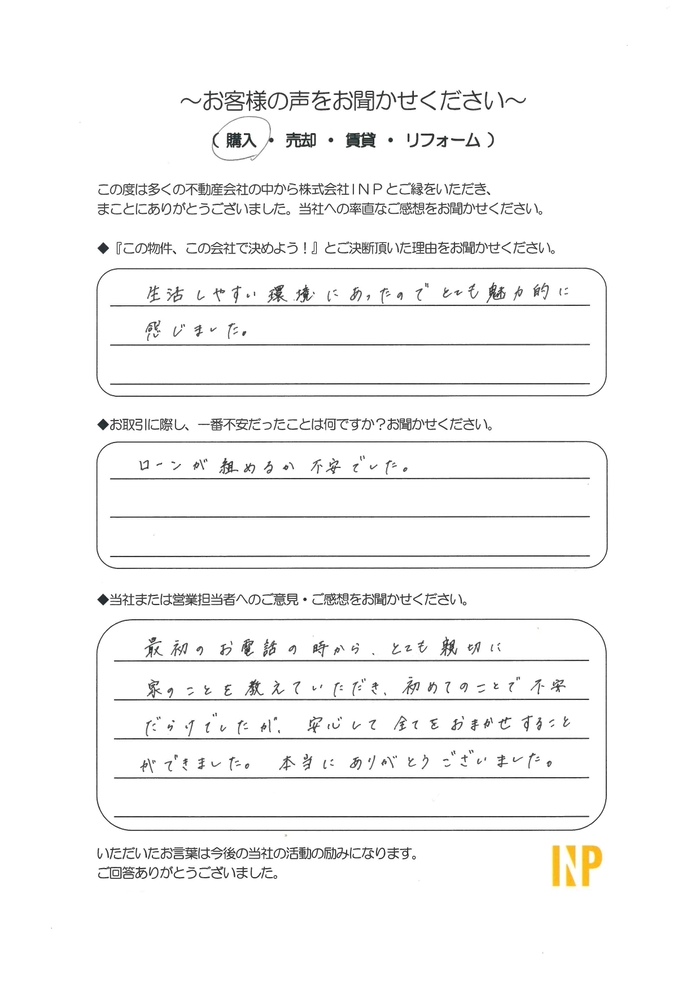 ～お客様の声をお聞かせください～
（ 購入 ・ 売却 ・ 賃貸 ・ リフォーム ）
この度は多くの不動産会社の中から株式会社ＩＮＰとご縁をいただき、
まことにありがとうございました。当社への率直なご感想をお聞かせください。
◆『この物件、この会社で決めよう！』とご決断頂いた理由をお聞かせください。
生活しやすい環境にあったのでとても魅力的に
感じました。
◆お取引に際し、一番不安だったことは何ですか？お聞かせください。
ローンが組めるか不安でした。
◆当社または営業担当者へのご意見・ご感想をお聞かせください。
最初のお電話の時から、とても親切に
家のことを教えていただき、初めてのことで不安
だらけでしたが、安心して全てをおまかせすること
ができました。 本当にありがとうございました。
いただいたお言葉は今後の当社の活動の励みになります。
ご回答ありがとうございました。
INP